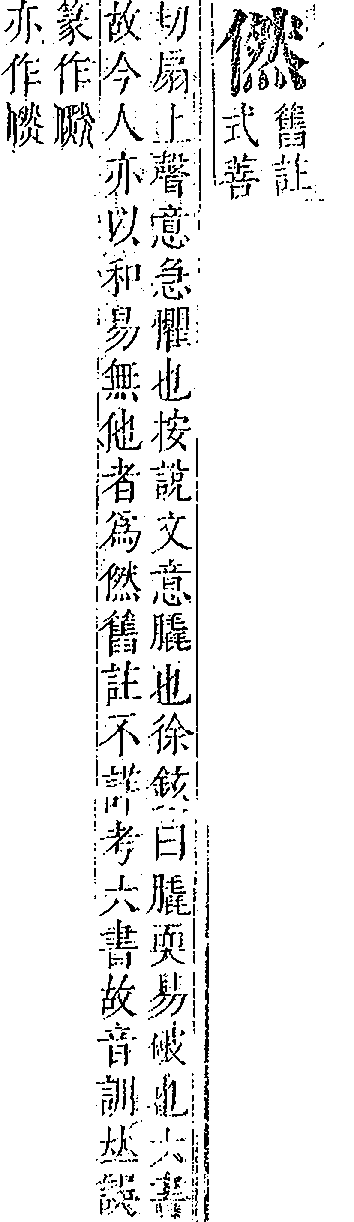 㒄
舊註
式善
切扇上聲意急懼也按說文意膬也徐鉉曰膬耎易破也六書
故今人亦以和易無他者爲㒄舊註不詳考六書故音訓𠀤誤
篆作
亦作